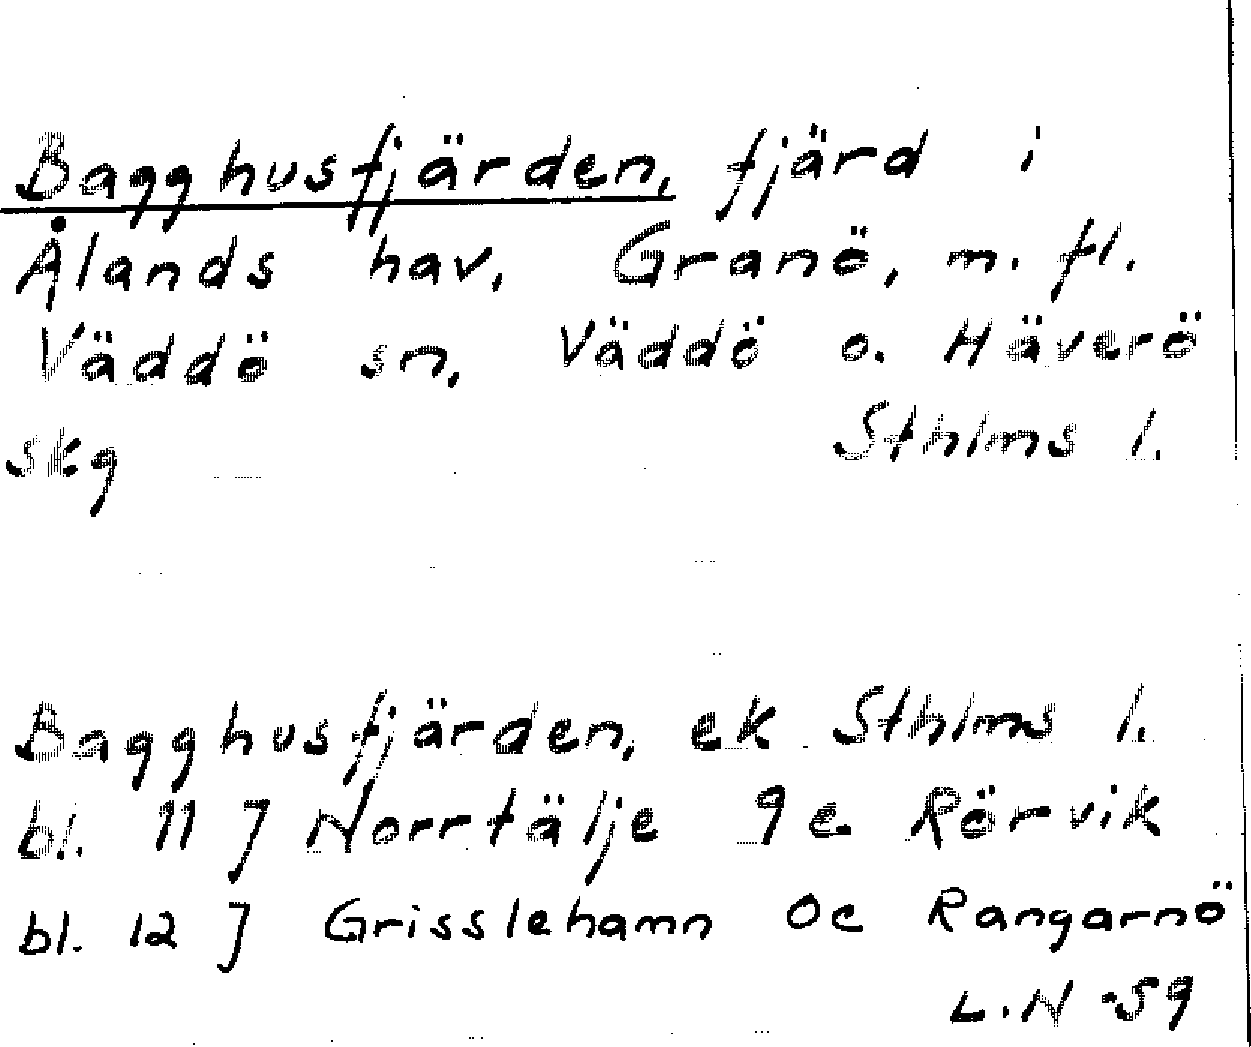 Bagghusfjärden, fjärd i
Ålands hav, Granö, m. fl.
Väddö sn, Väddö o. Häverö
skg Sthlms l.
Bagghusfjärden, ek Sthlms l.
bl. 11 J Norrtälje 9e Rörvik
bl. 12 J Grisslehamn 0c Rangarnö
L.N -59